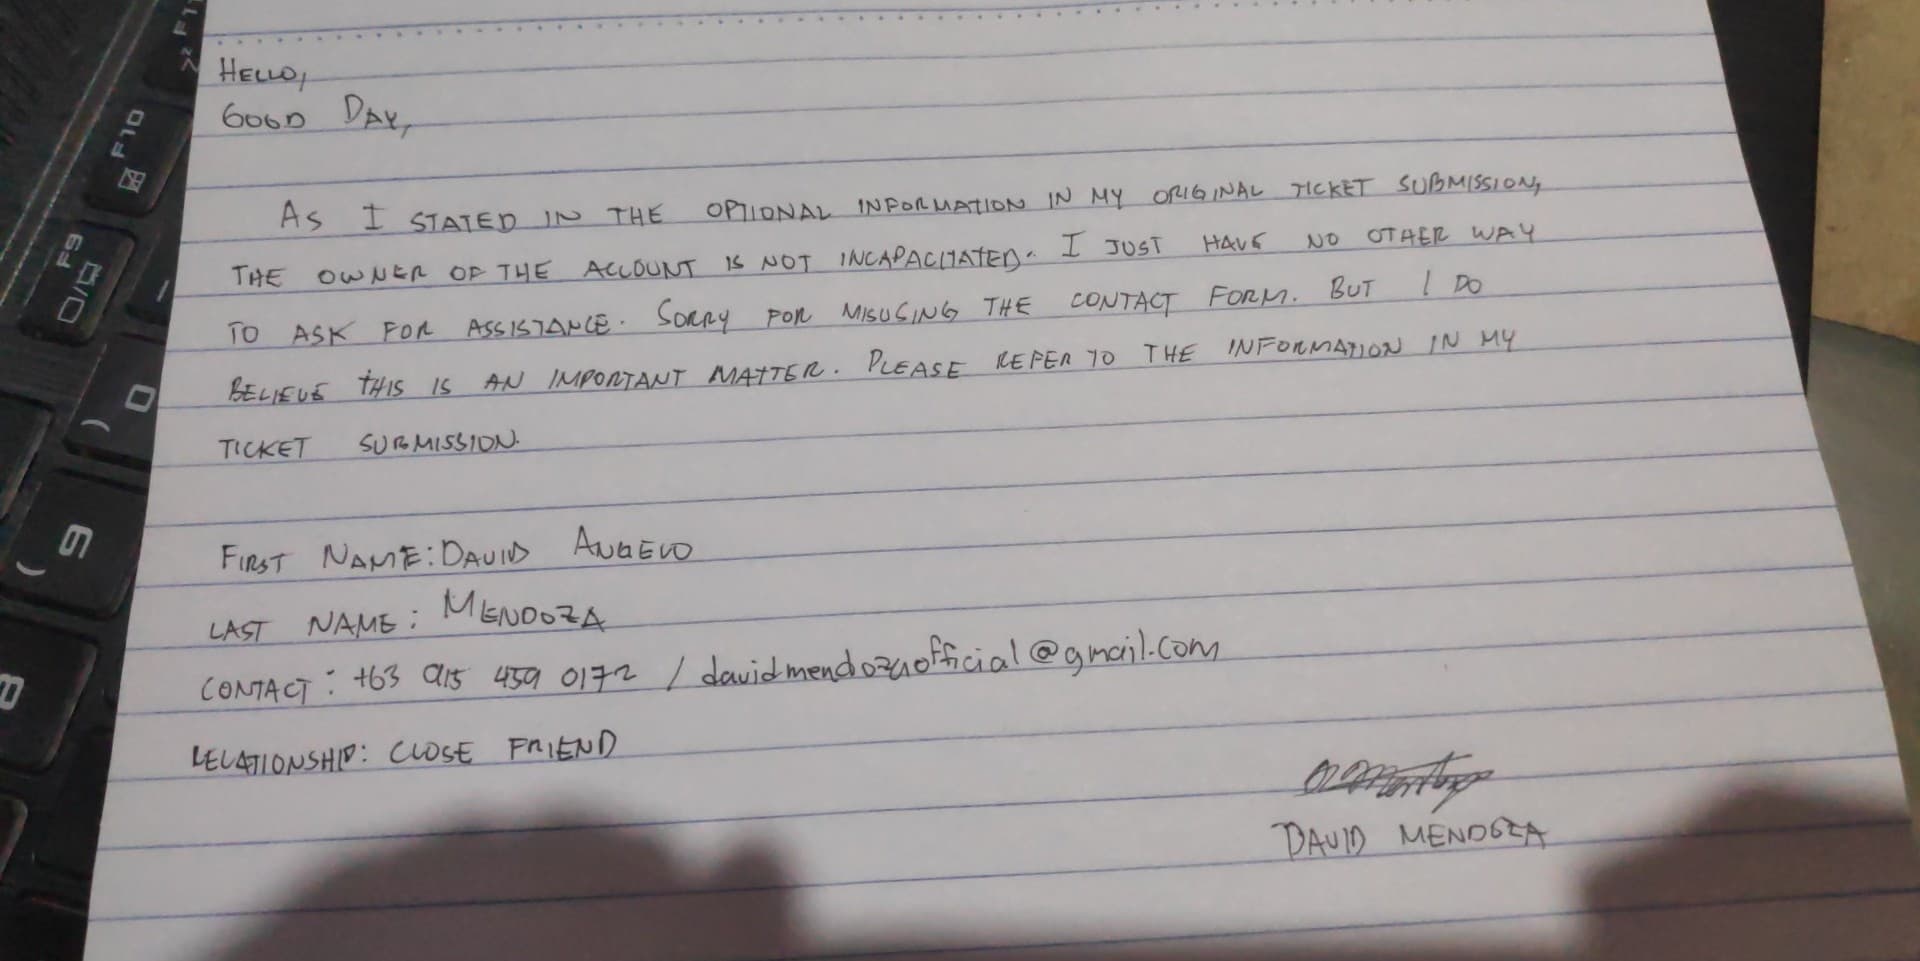 HELLO,
GOOD DAY,
AS I STATED IN THE OPTIONAL INFORMATION IN MY ORIGINAL TICKET SUBMISSION,
THE OWNER OF THE ACCOUNT IS NOT INCAPACITATED. I JUST HAVE NO OTHER WAY
TO ASK FOR ASSISTANCE. SORRY FOR MISUSING THE CONTACT FORM. BUT I DO
BELIEVE THIS IS AN IMPORTANT MATTER. PLEASE REFER TO THE INFORMATION IN MY
TICKET SUBMISSION.
FIRST NAME: DAVID ANGELO
LAST NAME: MENDOZA
CONTACT: +63 915 459 0172 / davidmendozaofficial@gmail.com
RELATIONSHIP: CLOSE FRIEND
DAVID MENDOZA
F11
F10
F9
0
)
9
(
8